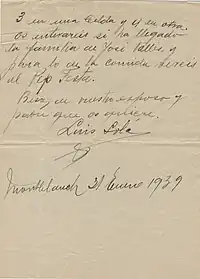 3 en una Celota y y en otra.
Os enterareis si ha llegado
la familia de José Valles y
para lo en la comida sereis
el Pep Festa.
Bien, en nuestro esposo y
padre que os quiere.
Luis Solá
Montblanch 31 Enero 1939